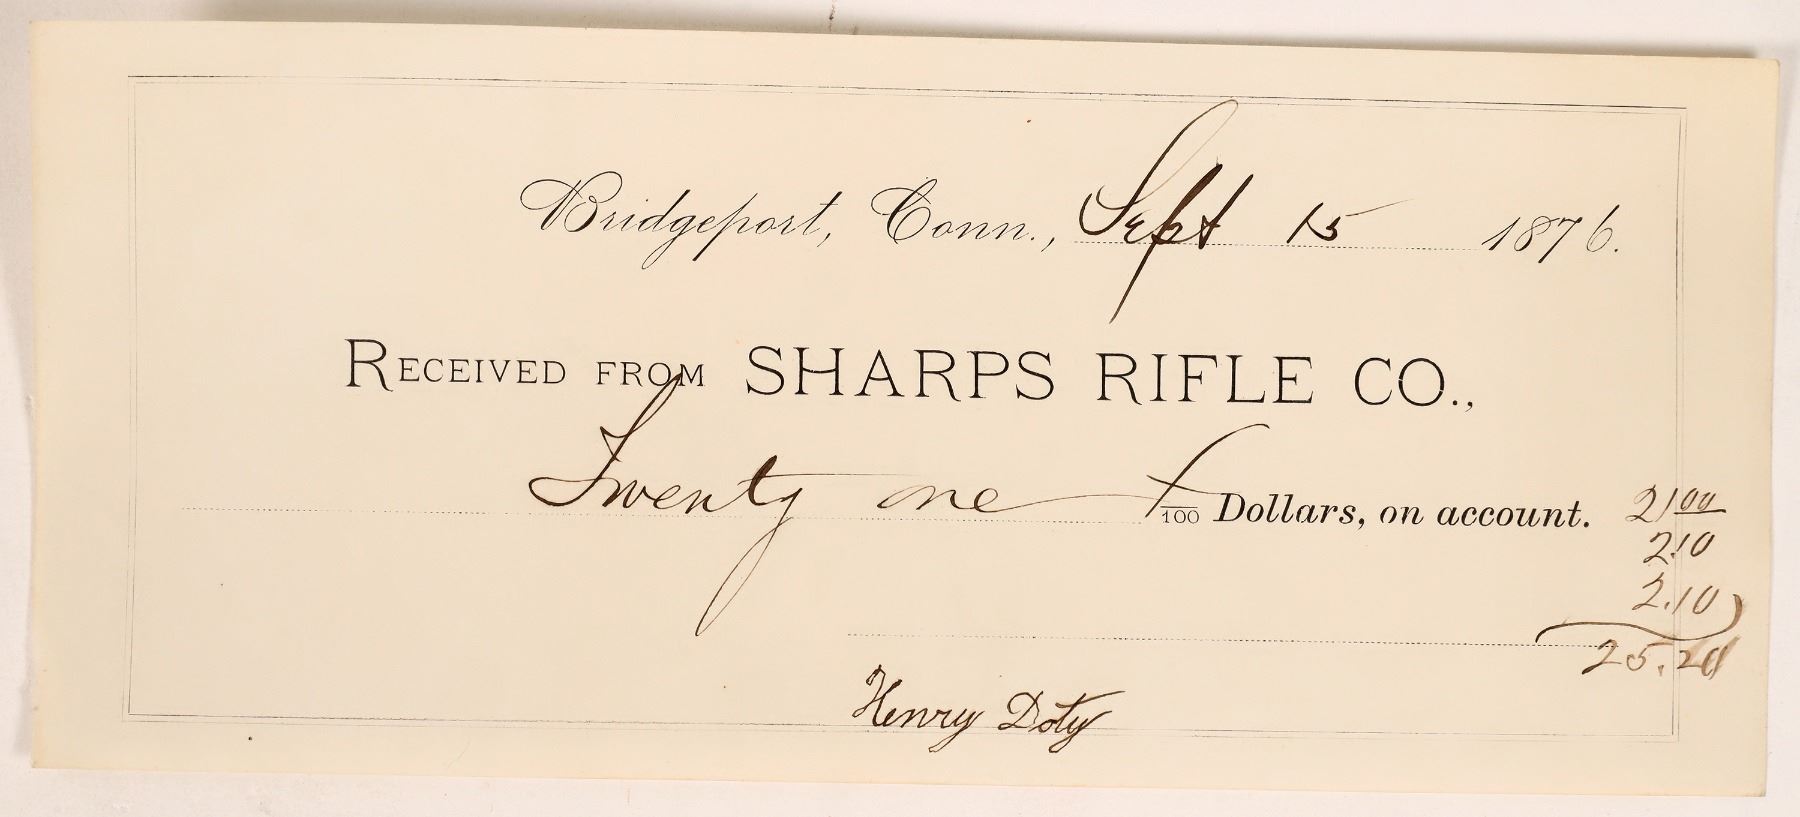 Bridgeport, Conn., Sept 15 1876.
RECEIVED FROM SHARPS RIFLE CO.,
Twenty one /100 Dollars, on account. 21 00
2.10
2.10
25.20
Henry Doty